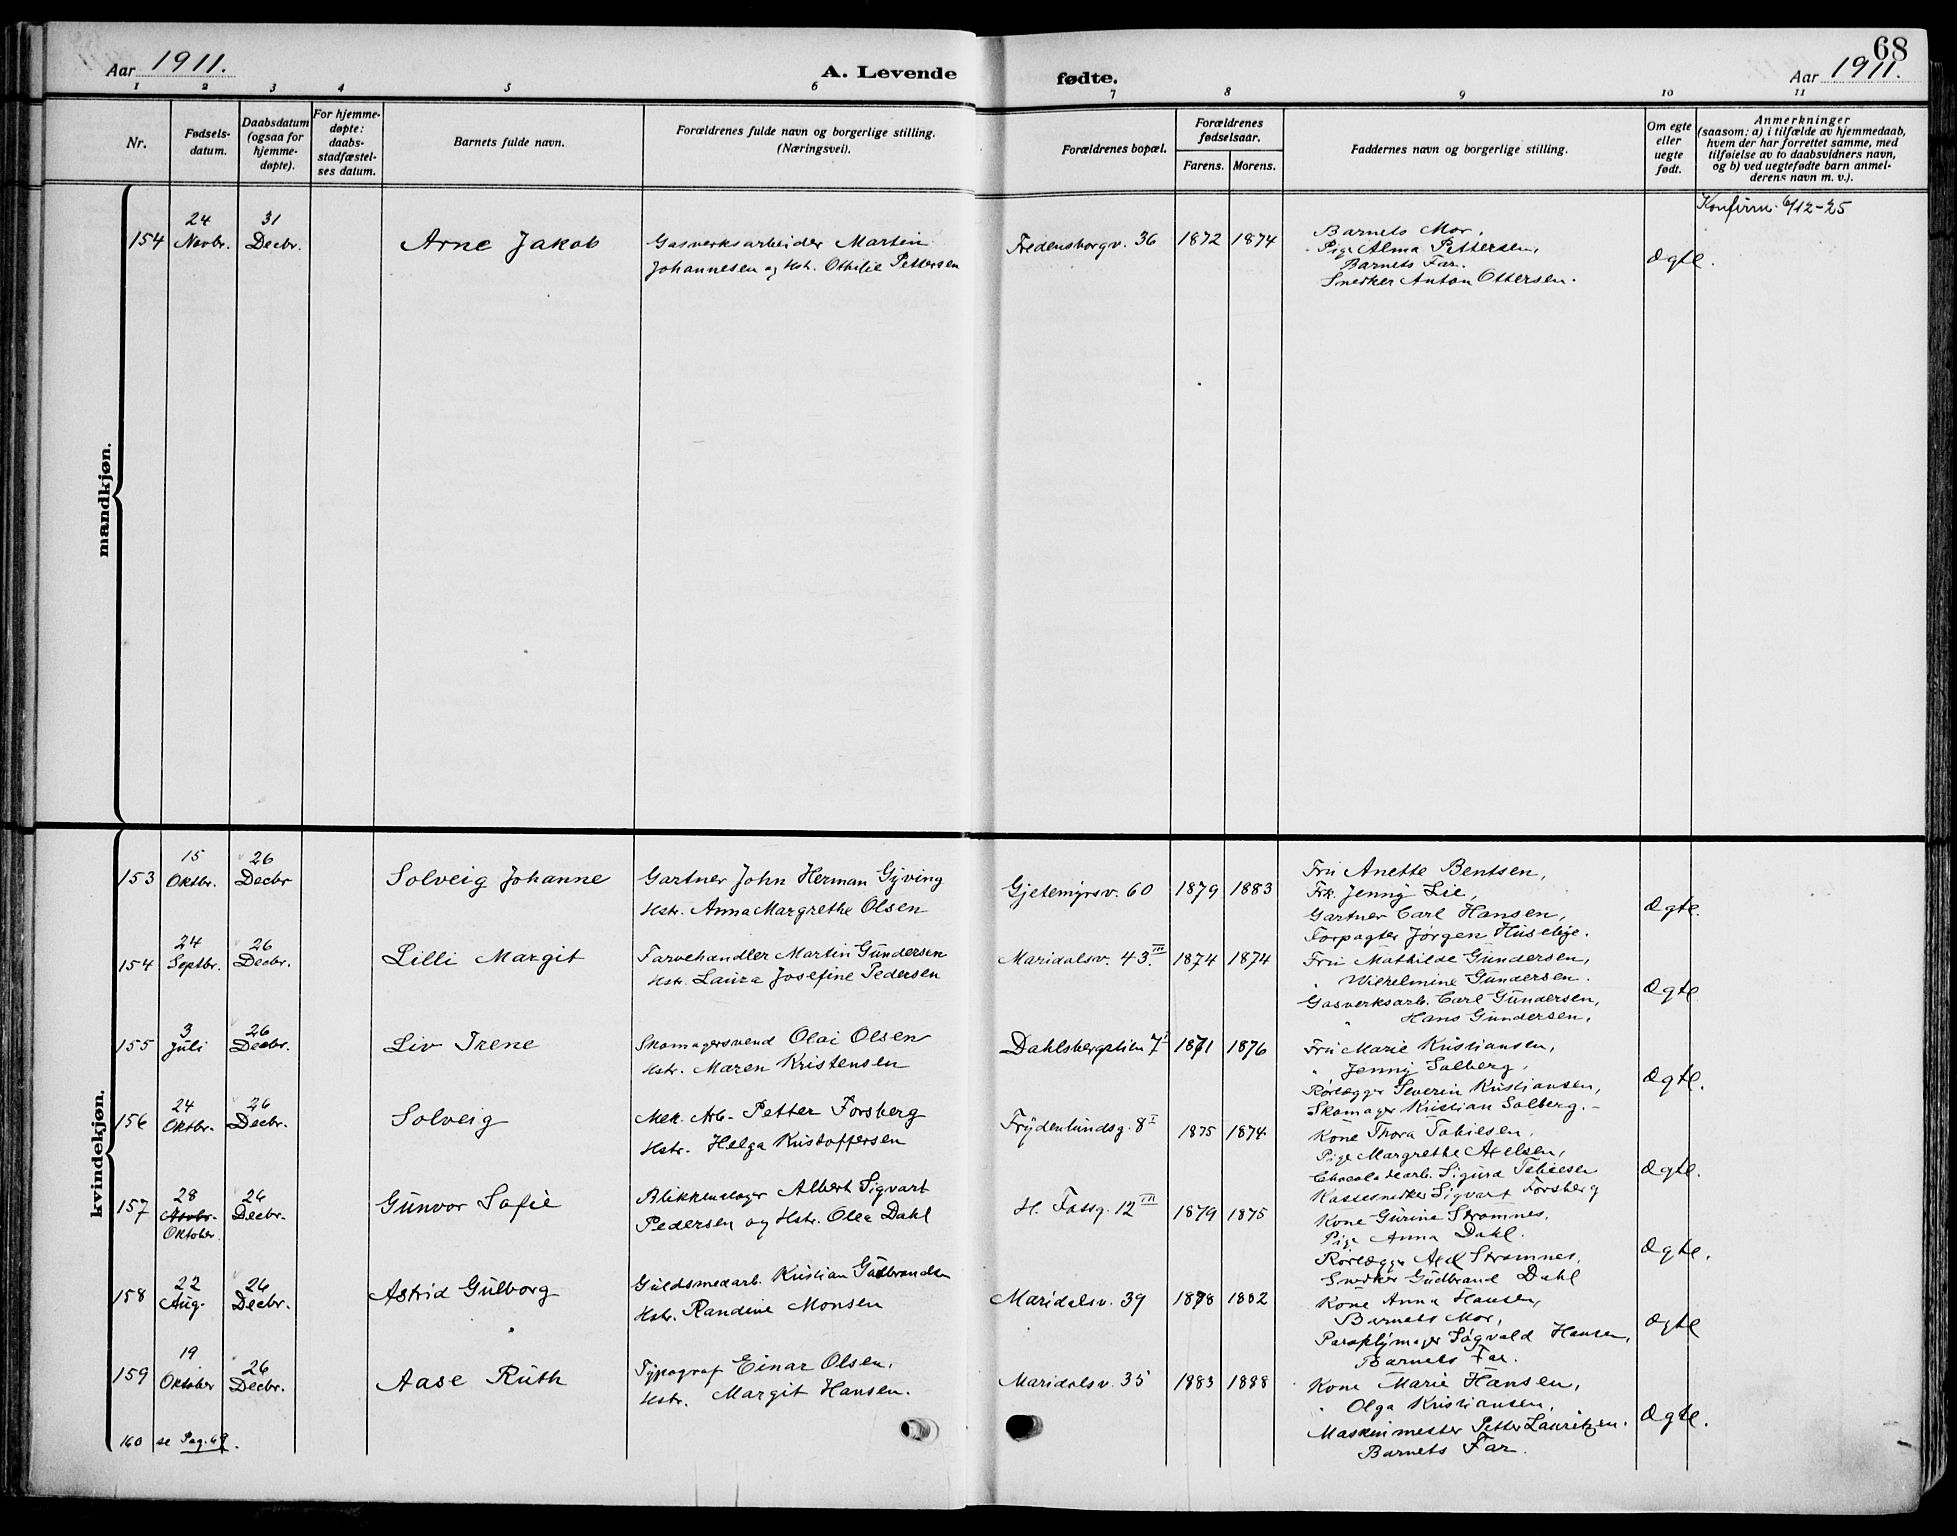 68
Aar 1911.
A. Levende
fødte.
Aar 1911.
1 2 3 4 5 6 7 8 9 10 11
Nr.
Fødsels-
datum.
Daabsdatum
(ogsaa for
hjemme-
døpte).
For hjemme-
døpte:
daabs-
stadfæstel-
ses datum.
Barnets fulde navn.
Forældrenes fulde navn og borgerlige stilling.
(Næringsvei).
Forældrenes bopæl.
Forældrenes
fødselsaar.
Farens. Morens.
Faddernes navn og borgerlige stilling.
Om egte
eller
uegte
født.
Anmerkninger
(saasom: a) i tilfælde av hjemmedaab,
hvem der har forrettet samme, med
tilføielse av to daabsvidners navn,
og b) ved uegtefødte barn anmel-
derens navn m. v.).
mandkjøn.
154
24
Novbr.
31
Decbr.
Arne Jakob
Gasverksarbeider Martin
Johannesen og Hst. Othilie Pettersen
Fredensborgv. 36
1872 1874
Barnets Mor,
Pige Alma Pettersen,
Barnets Far.
Snedker Anton Ottersen.
Ægte.
Konfirm. 6/12-25
kvindekjøn.
153
15
Oktbr.
26
Decbr
Solveig Johanne
Gartner John Herman Gyving
Hstr. Anna Margrethe Olsen
Gjetemyrsv. 60
1879 1883
Fru Anette Bentsen,
Frk. Jenny Lie,
Gartner Carl Hansen,
Forpagter Jørgen Huseby.
Ægte.
154
24
Septbr.
26
Decbr.
Lilli Margit
Farvehandler Martin Gundersen
Hstr. Laura Josefine Pedersen
Maridalsv. 43 III
1874 1874
Fru Mathilde Gundersen,
" Wilhelmine Gundersen.
Gasverksarb. Carl Gundersen,
" Hans Gundersen,
Ægte
155
3
Juli
26
Decbr.
Liv Irene
Skomagersvend Olai Olsen
Hstr. Maren Kristensen
Dahlsbergstien 7 I
1871 1876
Fru Marie Kristiansen,
" Jenny Solberg,
Rørlægger Severin Kristiansen,
Skomager Kristian Solberg.-
Ægte.
156
24
Oktbr.
26
Decbr.
Solveig
Mek. Arb. Petter Forsberg
Hstr. Helga Kristoffersen
Frydenlundsg. 8 I
1875 1874
Kone Thora Tobiesen,
Pige Margrethe Axelsen,
Chocoladearb. Sigurd Tobiesen
Kassesnedker Sigvart Forsberg
Ægte.
157
28
Novbr.
Oktober.
26
Decbr.
Gunvor Sofie
Blikkenslager Albert Sigvart
Pedersen og Hstr. Olea Dahl
H. Fossg. 12 III
1879 1875
Kone Gurine Strømnes,
Pige Anna Dahl.
Rørlægger Axel Strømnes,
Snedker Gudbrand Dahl
Ægte.
158
22
Aug.
26
Decbr.
Astrid Gulborg
Guldsmedarb. Kristian Gudbrandsen
Hstr. Randine Monsen
Maridalsv. 39
1878 1882
Kone Anna Hansen,
Barnets Mor,
Paraplymager Sigvald Hansen,
Barnets Far.
Ægte
159
19
Oktober
26
Decbr.
Aase Ruth
Typograf Einar Olsen,
Hstr. Margit Hansen.
Maridalsv. 35
1883 1888
Kone Marie Hansen,
" Olga Kristiansen,
Maskinmester Petter Lauritzen.
Barnets Far.
Ægte.
160 se Pag. 69.